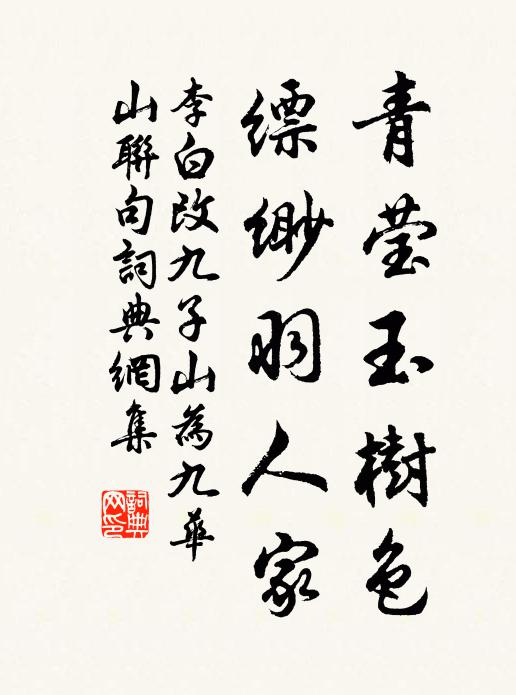 青莹玉樹色
縹緲羽人家
李白改九子山為九華
山聯句詞典網集
詞典
网印